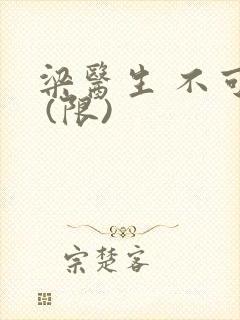 梁醫生 不可
(限)
宗楚客